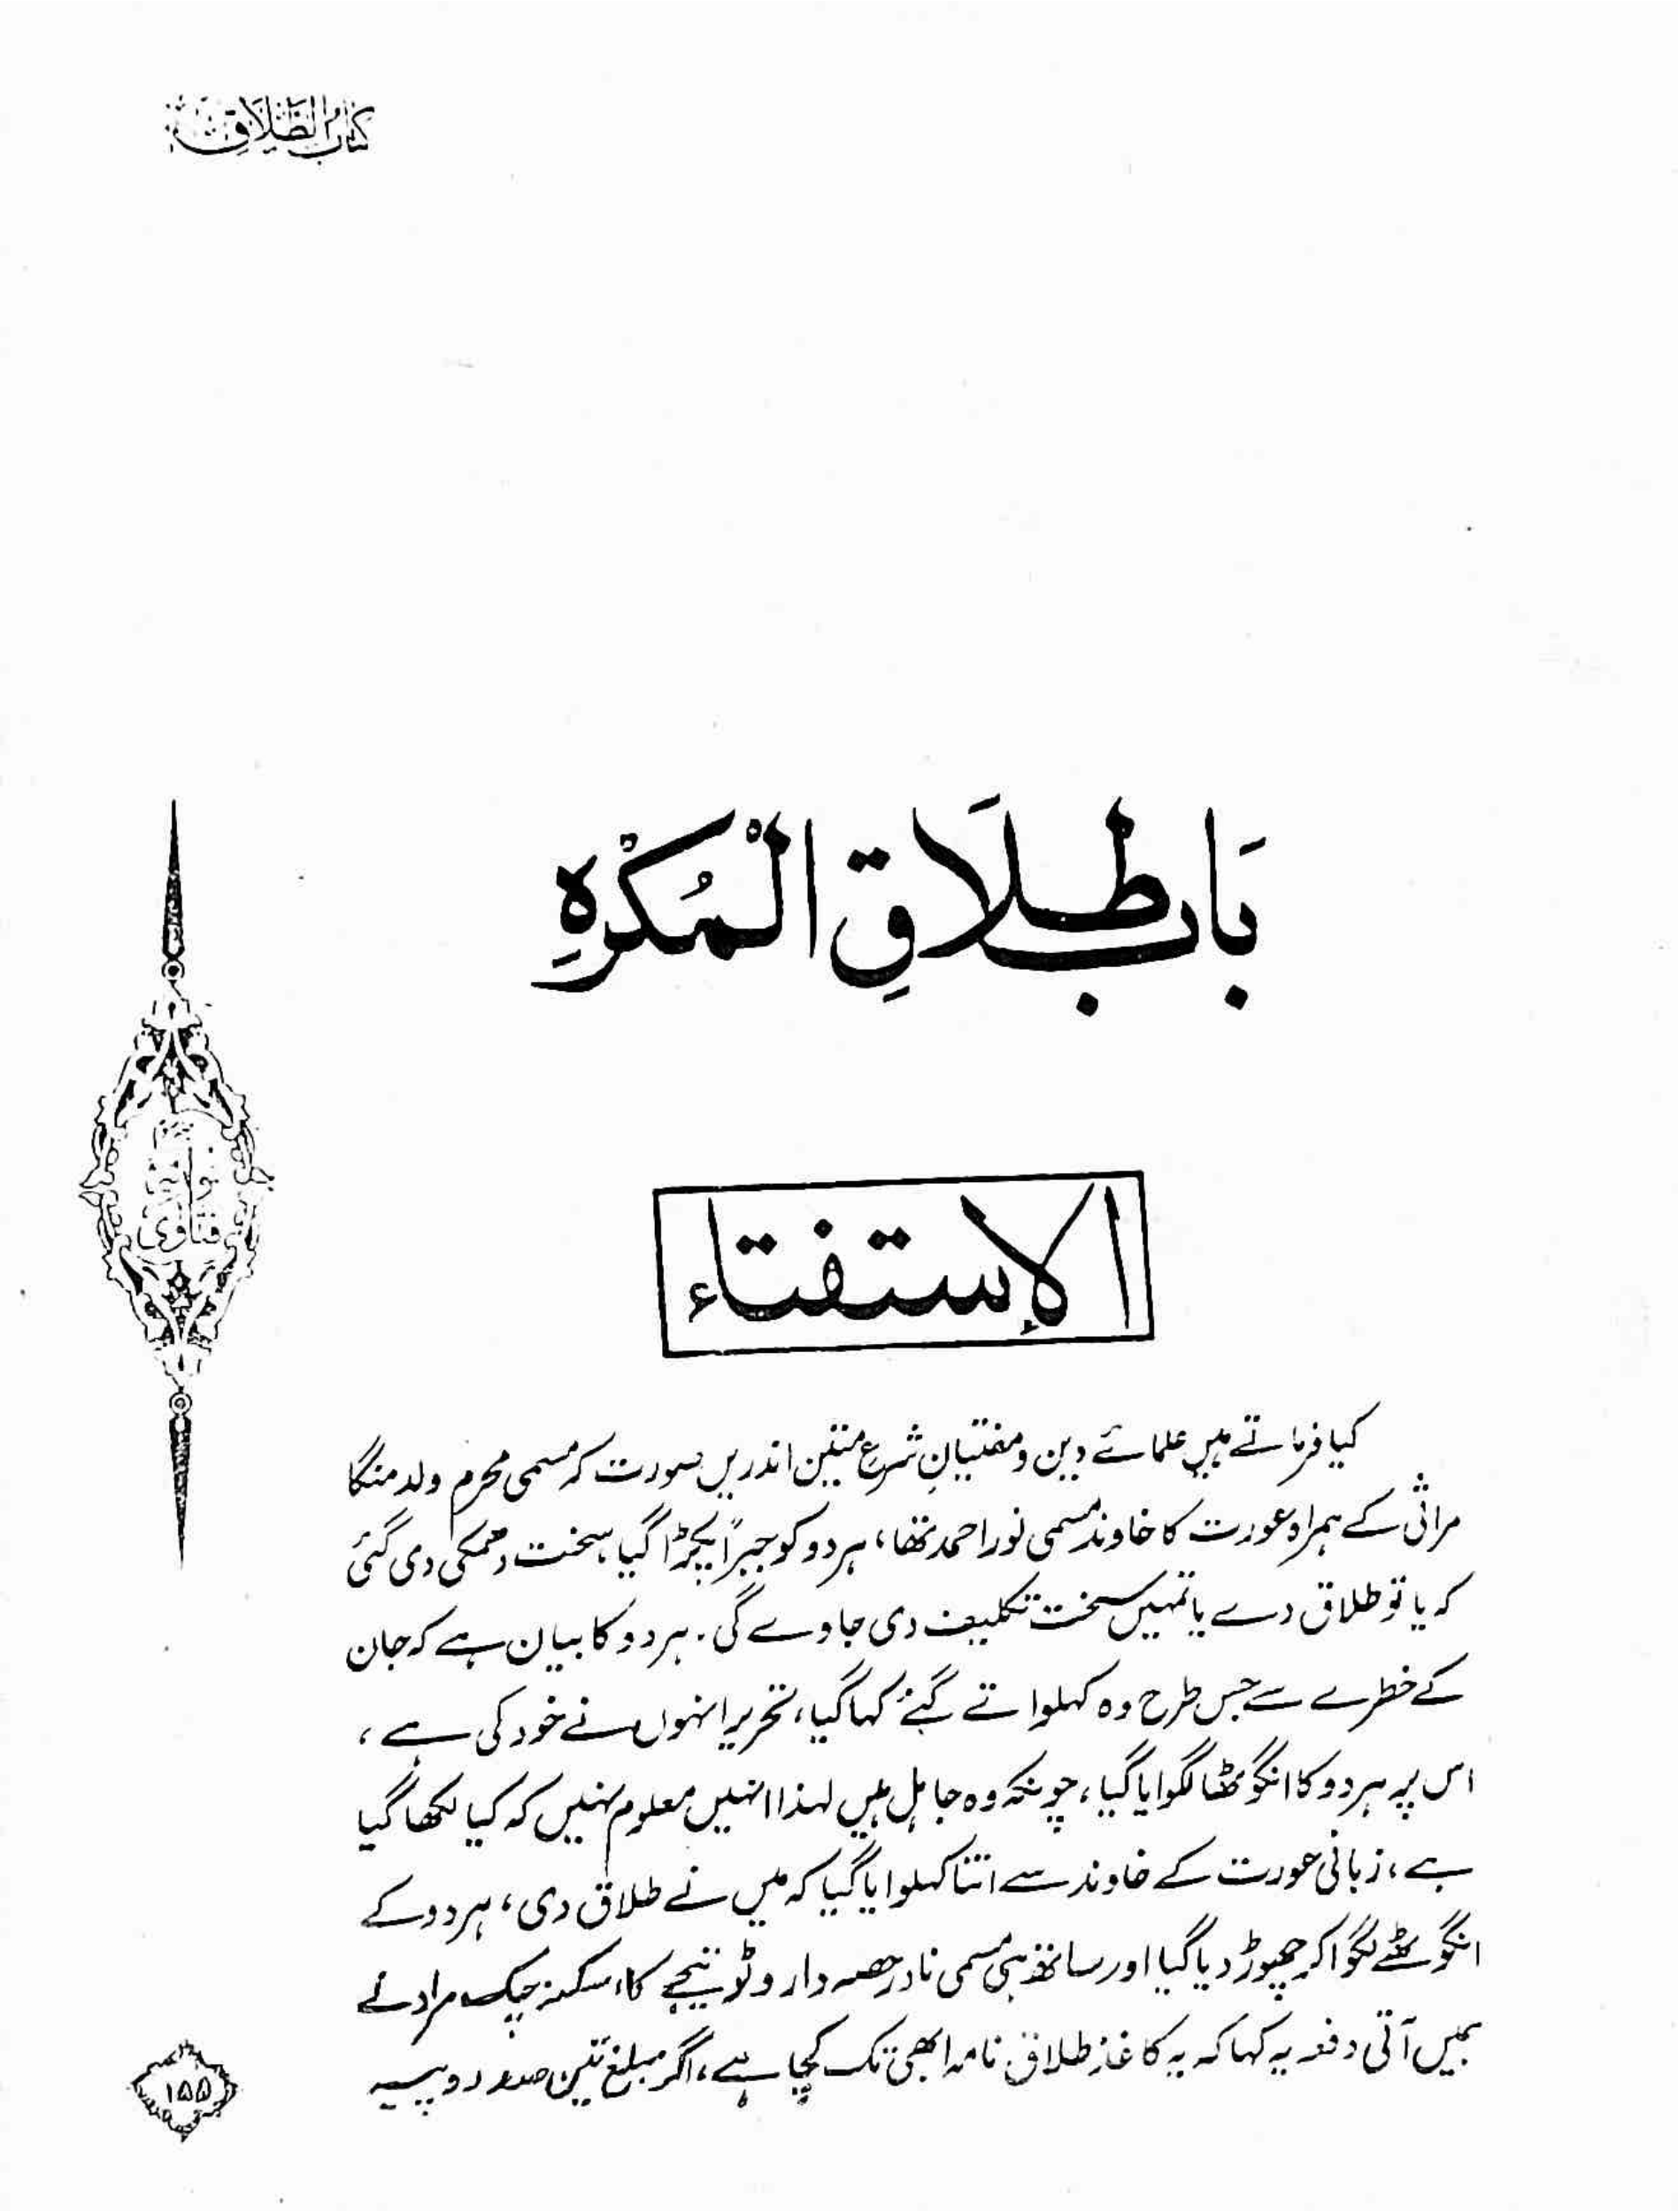 کتاب الطلاق
بَابُ طَلَاقِ الْمُكْرَهِ
الإستفتاء
کیا فرماتے ہیں علمائے دین و مفتیانِ شرع متین اندریں صورت کہ مسمی محرم ولد منگا
مراثی کے ہمراہ عورت کا خاوند مسمی نور احمد تھا، ہر دو کو جبراً پکڑا گیا، سخت دھمکی دی گئی
کہ یا تو طلاق دے یا تمہیں سخت تکلیف دی جاوے گی۔ ہر دو کا بیان ہے کہ جان
کے خطرے سے جس طرح وہ کہلواتے گئے کہا گیا، تحریر انہوں نے خود کی ہے،
اس پر ہر دو کا انگوٹھا لگوایا گیا، چونکہ وہ جاہل ہیں لہذا انہیں معلوم نہیں کہ کیا لکھا گیا
ہے، زبانی عورت کے خاوند سے اتنا کہلوایا گیا کہ میں نے طلاق دی، ہر دو کے
انگوٹھے لگوا کر چھوڑ دیا گیا اور ساتھ ہی مسمی نادر حصہ دار وٹو نیجے کا، سکنہ چک مراد نے
ہمیں آتی دفعہ یہ کہا کہ یہ کاغذ طلاق نامہ ابھی تک کچا ہے، اگر مبلغ تین صد روپیہ
فتاوی
۱۵۵